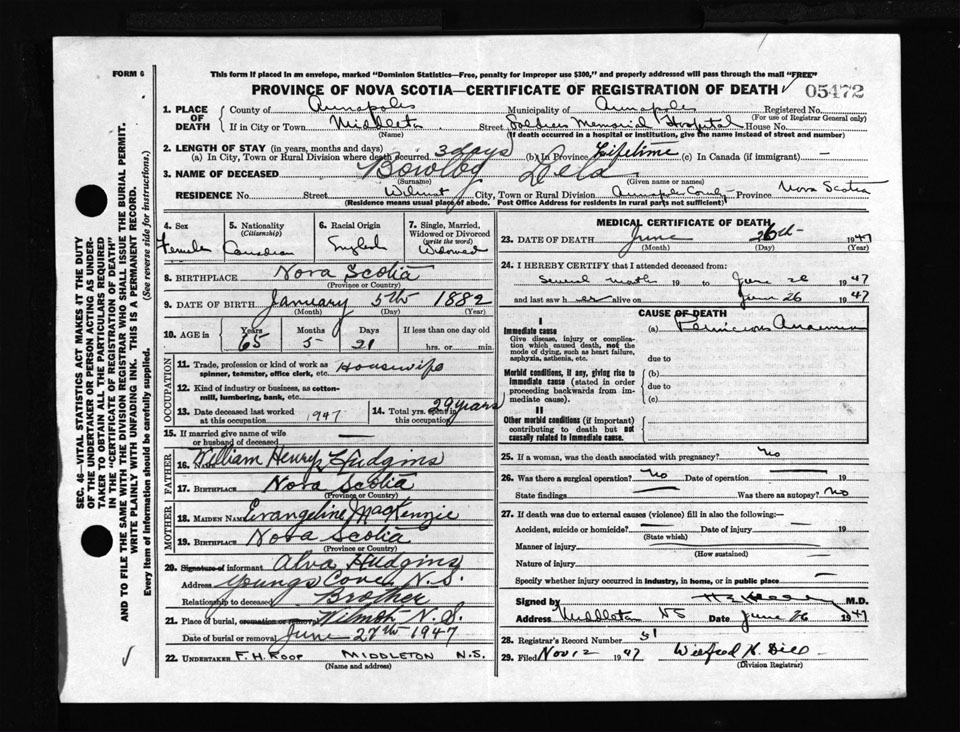 FORM 6
This form if placed in an envelope, marked "Dominion Statistics—Free, penalty for improper use $300," and properly addressed will pass through the mail "FREE"
PROVINCE OF NOVA SCOTIA—CERTIFICATE OF REGISTRATION OF DEATH √ 05472
1. PLACE OF DEATH
County of Annapolis Municipality of Annapolis Registered No.
(For use of Registrar General only)
If in City or Town Middleton Street Soldiers Memorial Hospital House No.
(Name) (If death occurred in a hospital or institution, give the name instead of street and number)
2. LENGTH OF STAY (in years, months and days)
(a) In City, Town or Rural Division where death occurred 3 days (b) In Province Lifetime (c) In Canada (if immigrant) —
3. NAME OF DECEASED Bowlby Dela
(Surname) (Given name or names)
RESIDENCE No. Street Wilmot City, Town or Rural Division Annapolis County Province Nova Scotia
(Residence means usual place of abode. Post Office Address for residents in rural parts not sufficient)
4. Sex Female
5. Nationality (Citizenship) Canadian
6. Racial Origin English
7. Single, Married, Widowed or Divorced (write the word) Widowed
8. BIRTHPLACE Nova Scotia
(Province or County)
9. DATE OF BIRTH January 5th 1882
(Month) (Day) (Year)
10. AGE in Years 65 Months 5 Days 21 If less than one day old hrs. or min.
OCCUPATION
11. Trade, profession or kind of work as spinner, teamster, office clerk, etc. Housewife
12. Kind of industry or business, as cotton-mill, lumbering, bank, etc.
13. Date deceased last worked at this occupation 1947
14. Total yrs. spent in this occupation 29 years
15. If married give name of wife or husband of deceased —
FATHER
16. Name William Henry Hudgins
17. BIRTHPLACE Nova Scotia
(Province or Country)
MOTHER
18. MAIDEN NAME Evangeline MacKenzie
19. BIRTHPLACE Nova Scotia
(Province or Country)
20. Signature of informant Alva Hudgins
Address Youngs Cove N.S.
Relationship to deceased Brother
21. Place of burial, cremation or removal Wilmot N.S.
Date of burial or removal June 27th 1947
22. UNDERTAKER F. H. ROOP MIDDLETON N.S.
(Name and address)
MEDICAL CERTIFICATE OF DEATH
23. DATE OF DEATH June 26th 1947
(Month) (Day) (Year)
24. I HEREBY CERTIFY that I attended deceased from:
several months 19 to June 26 1947
and last saw her alive on June 26 1947
CAUSE OF DEATH
I
Immediate cause
Give disease, injury or complication which caused death, not the mode of dying, such as heart failure, asphyxia, asthenia, etc.
(a) Pernicious Anaemia
due to
Morbid conditions, if any, giving rise to immediate cause (stated in order proceeding backwards from immediate cause).
(b)
due to
(c)
II
Other morbid conditions (if important) contributing to death but not causally related to immediate cause.
25. If a woman, was the death associated with pregnancy? no
26. Was there a surgical operation? no Date of operation — 19
State findings — Was there an autopsy? no
27. If death was due to external causes (violence) fill in also the following:—
Accident, suicide or homicide? Date of injury 19
(State which)
Manner of injury
(How sustained)
Nature of injury
Specify whether injury occurred in industry, in home, or in public place —
Signed by M.D.
Address Middleton NS Date June 26 1947
28. Registrar's Record Number 51
29. Filed Nov 12 1947 Wilfred
(Division Registrar)
SEC. 46—VITAL STATISTICS ACT MAKES IT THE DUTY
OF THE UNDERTAKER OR PERSON ACTING AS UNDER-
TAKER TO OBTAIN ALL THE PARTICULARS REQUIRED
IN THE "CERTIFICATE OF REGISTRATION OF DEATH"
AND TO FILE THE SAME WITH THE DIVISION REGISTRAR WHO SHALL ISSUE THE BURIAL PERMIT.
WRITE PLAINLY WITH UNFADING INK. THIS IS A PERMANENT RECORD.
Every item of information should be carefully supplied. (See reverse side for instructions.)